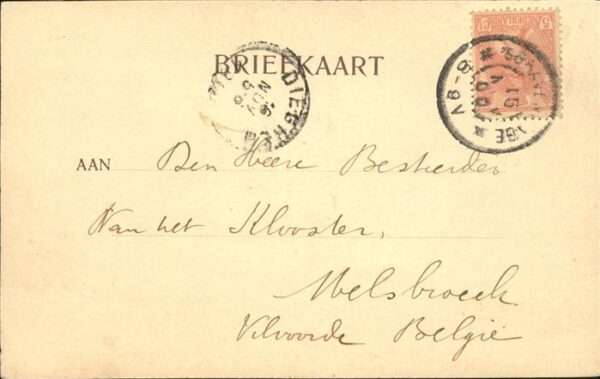 BRIEFKAART
DIEGHEM
NOV
AAN Den Heere Bestierder
Van het Klooster,
Melsbroeck
Vilvoorde België